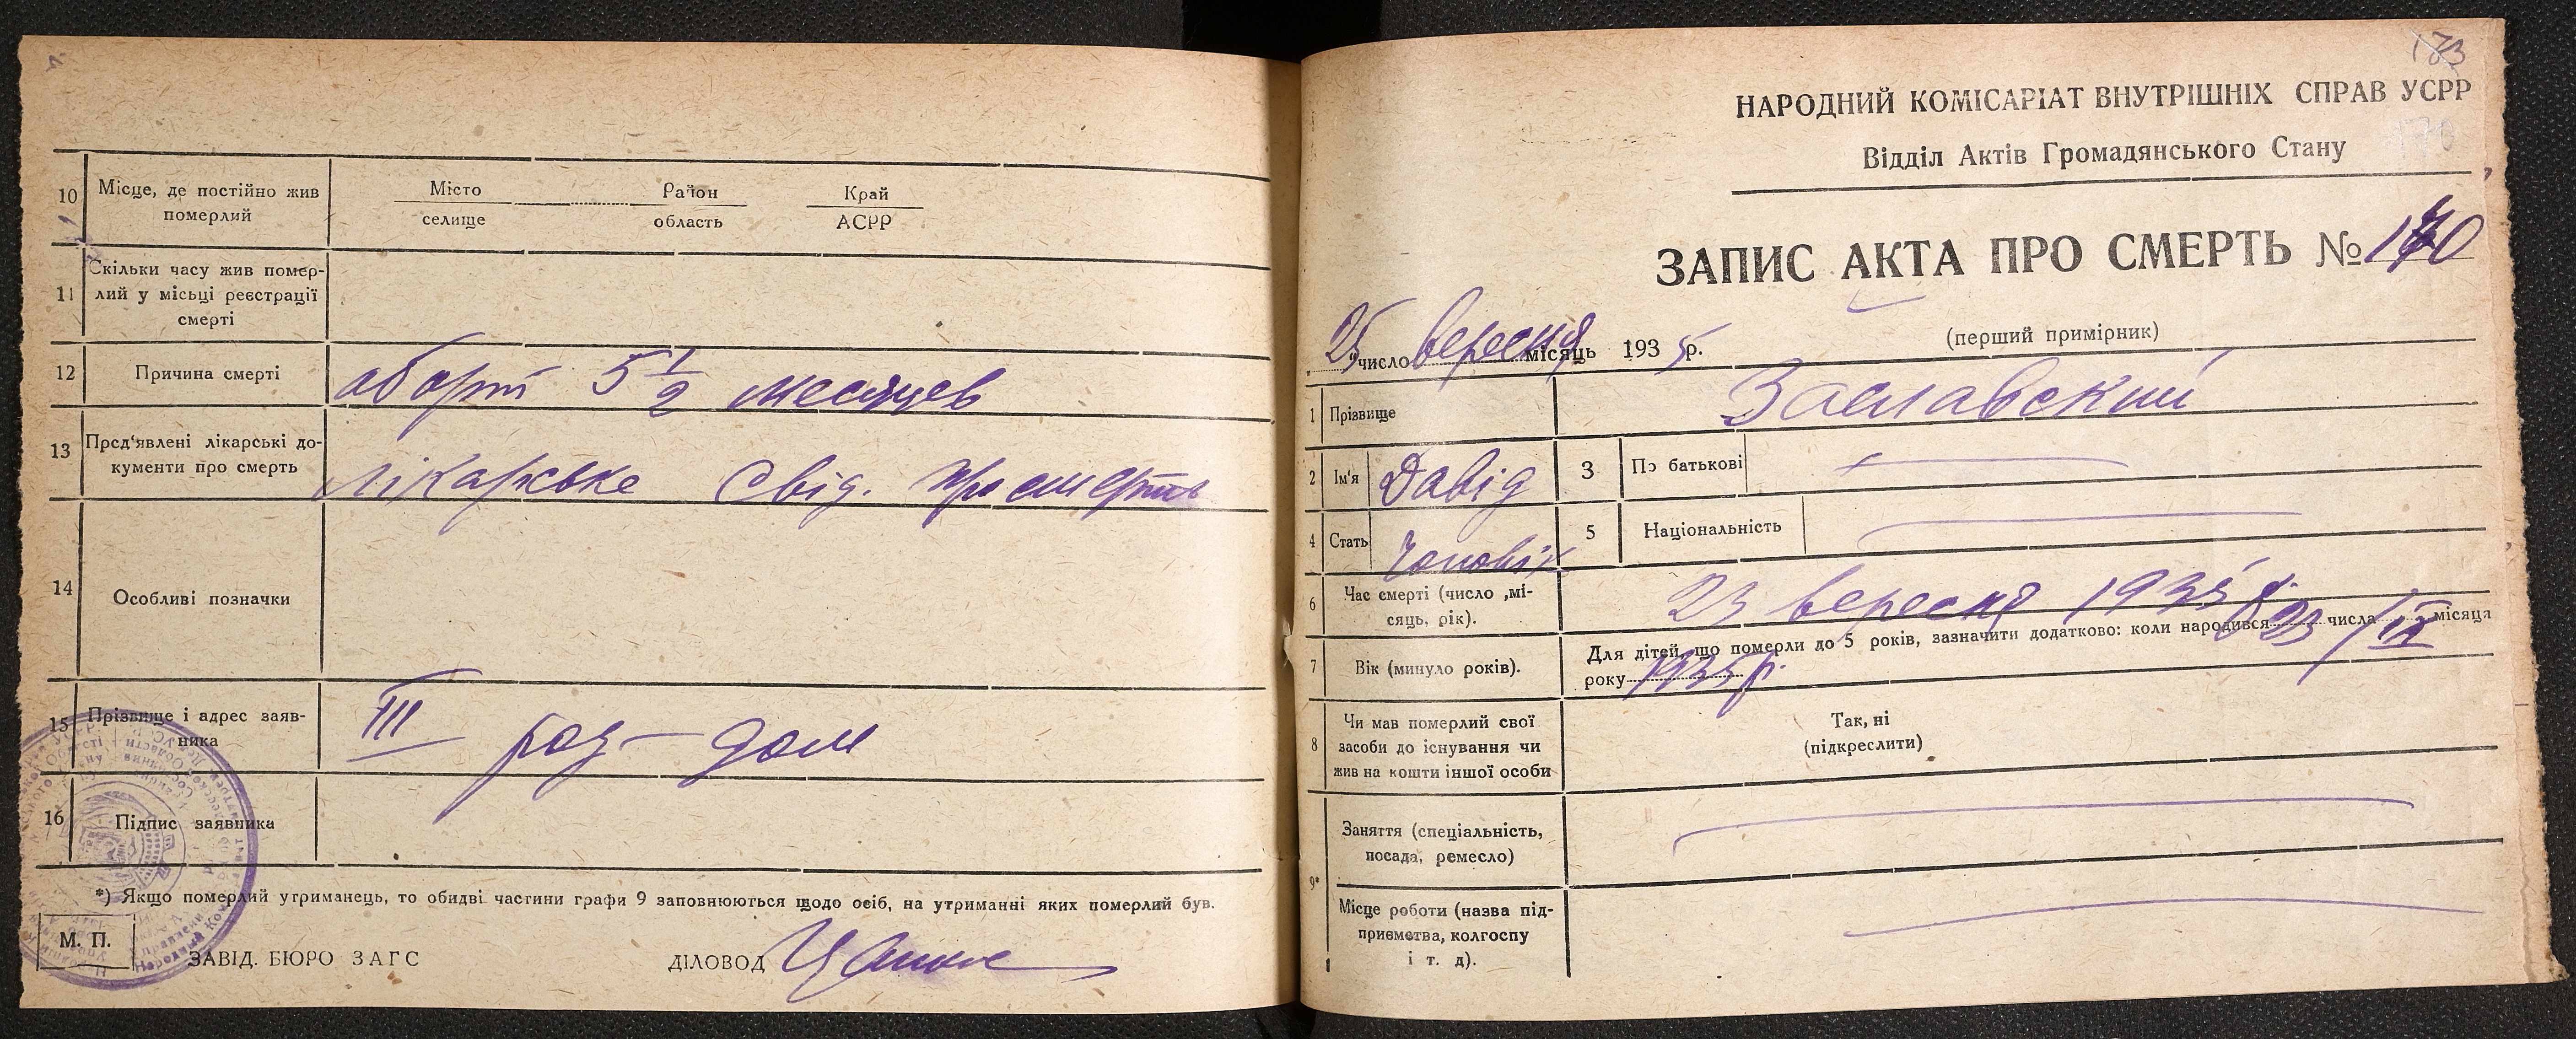 10 Місце, де постійно жив померлий
Місто
селище
Район
область
Край
АСРР
11 Скільки часу жив помер-
лий у місьці реєстрації
смерті
12 Причина смерті аборт 5 1/2 месяцев
13 Пред'явлені лікарські до-
кументи про смерть
лікарське свід. про смерть
14 Особливі позначки
15 Прізвище і адрес заяв-
ника
III род-дом
16 Підпис заявника
*) Якщо померлий утриманець, то обидві частини графи 9 заповнюються щодо осіб, на утриманні яких померлий був.
М. П.
ЗАВІД. БЮРО ЗАГС
ДІЛОВОД
НАРОДНИЙ КОМІСАРІАТ ВНУТРІШНІХ СПРАВ УСРР
Відділ Актів Громадянського Стану
ЗАПИС АКТА ПРО СМЕРТЬ № 170
(перший примірник)
25 число вересня місяць 1935 р.
1 Прізвище Заславский
2 Ім'я Давід 3 По батькові —
4 Стать Чоловік 5 Національність —
6 Час смерті (число ,мі-
сяць, рік).
23 вересня 1935 р.
7 Вік (минуло років).
Для дітей, що померли до 5 років, зазначити додатково: коли народився 23 числа / IX місяця
року 1935 р.
8 Чи мав померлий свої
засоби до існування чи
жив на кошти іншої особи
Так, ні
(підкреслити)
9* Заняття (спеціальність,
посада, ремесло) —
Місце роботи (назва під-
приємства, колгоспу
і т. д). —